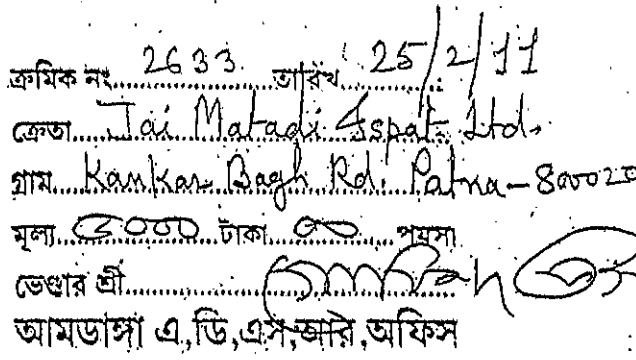 ক্রমিক নং 2633 তারিখ 25/2/11
ক্রেতা Jai Matadi Ispat Ltd.
গ্রাম Kankar Bagh Rd. Patna-800020
মূল্য ৫০০০ টাকা ০০ পয়সা
ভেণ্ডার শ্রী
আমডাঙ্গা এ,ডি,এস,আর,অফিস